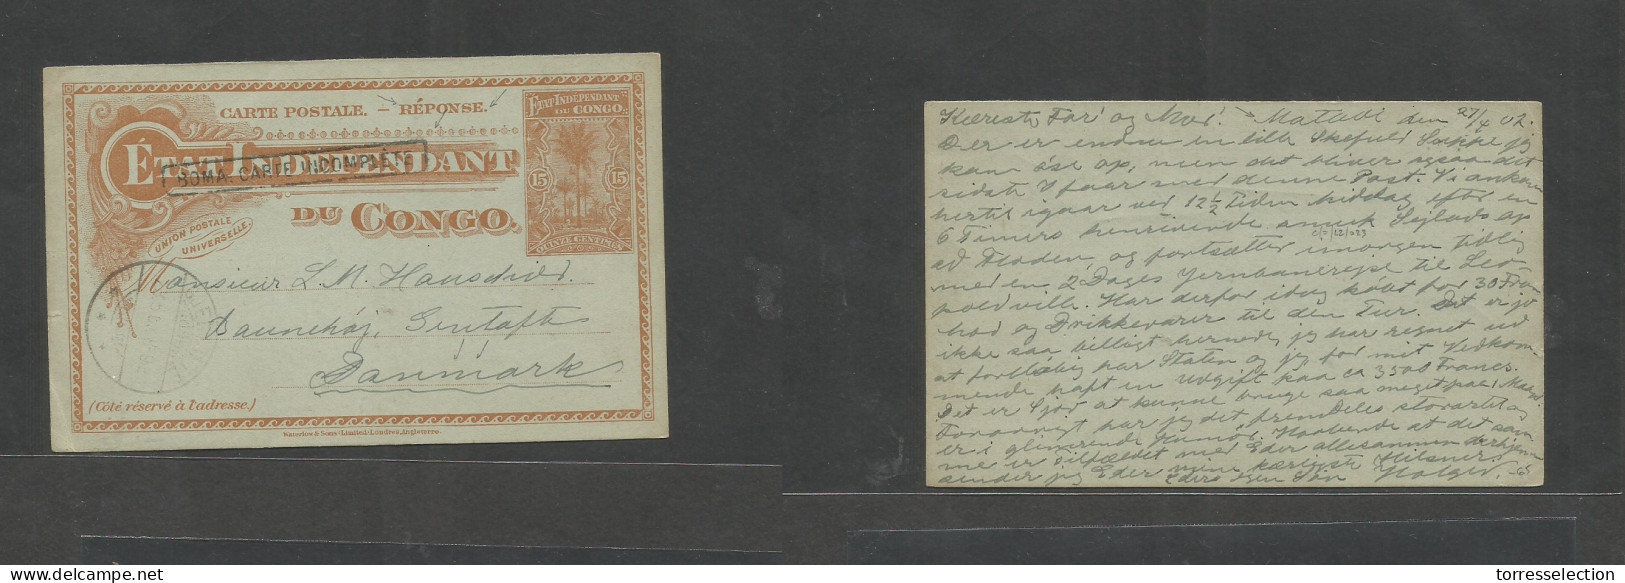 CARTE POSTALE. — RÉPONSE.
ÉTAT INDÉPENDANT
DU CONGO.
BOMA. CARTE INCOMPLÈTE
UNION POSTALE
UNIVERSELLE.
ÉTAT INDÉPENDANT
DU CONGO.
15 15
QUINZE CENTIMES
Monsieur L. N.
Daunehöj, Gentofte
Danmark
(Côté réservé à l'adresse.)
Waterlow & Sons Limited. Londres, Angleterre.
Kæreste Far og Mor! Matadi den 27/4 02.
Der er endnu en lille Skefuld Suppe jeg
kan øse op, men det bliver ogsaa det
sidste I faar med denne Post. Vi ankom
hertil igaar ved 12½ Tiden Middag efter en
6 Timers henrivende smuk Sejlads op
ad Floden, og fortsætter imorgen tidlig
med en 2 Dages Jernbanerejse til Leo-
poldville. Har derfor idag købt for 30 Fra
Mad og Drikkevarer til den Tur. Det er jo
ikke saa billigt hernede, jeg har regnet ud
at foreløbig har Staten og jeg for mit Vedkom-
mende haft en Udgift paa ca 3500 Francs.
Det er Sjov at kunne bruge saa meget paa 1 Maaned.
Forøvrigt har jeg det fremdeles storartet og
er i glimrende Humør. Haabende at det samme
er tilfældet med Eder allesammen derhjemme
sender jeg Eder mine kærligste Hilsner
Eders egen Søn Holger.
torresselection